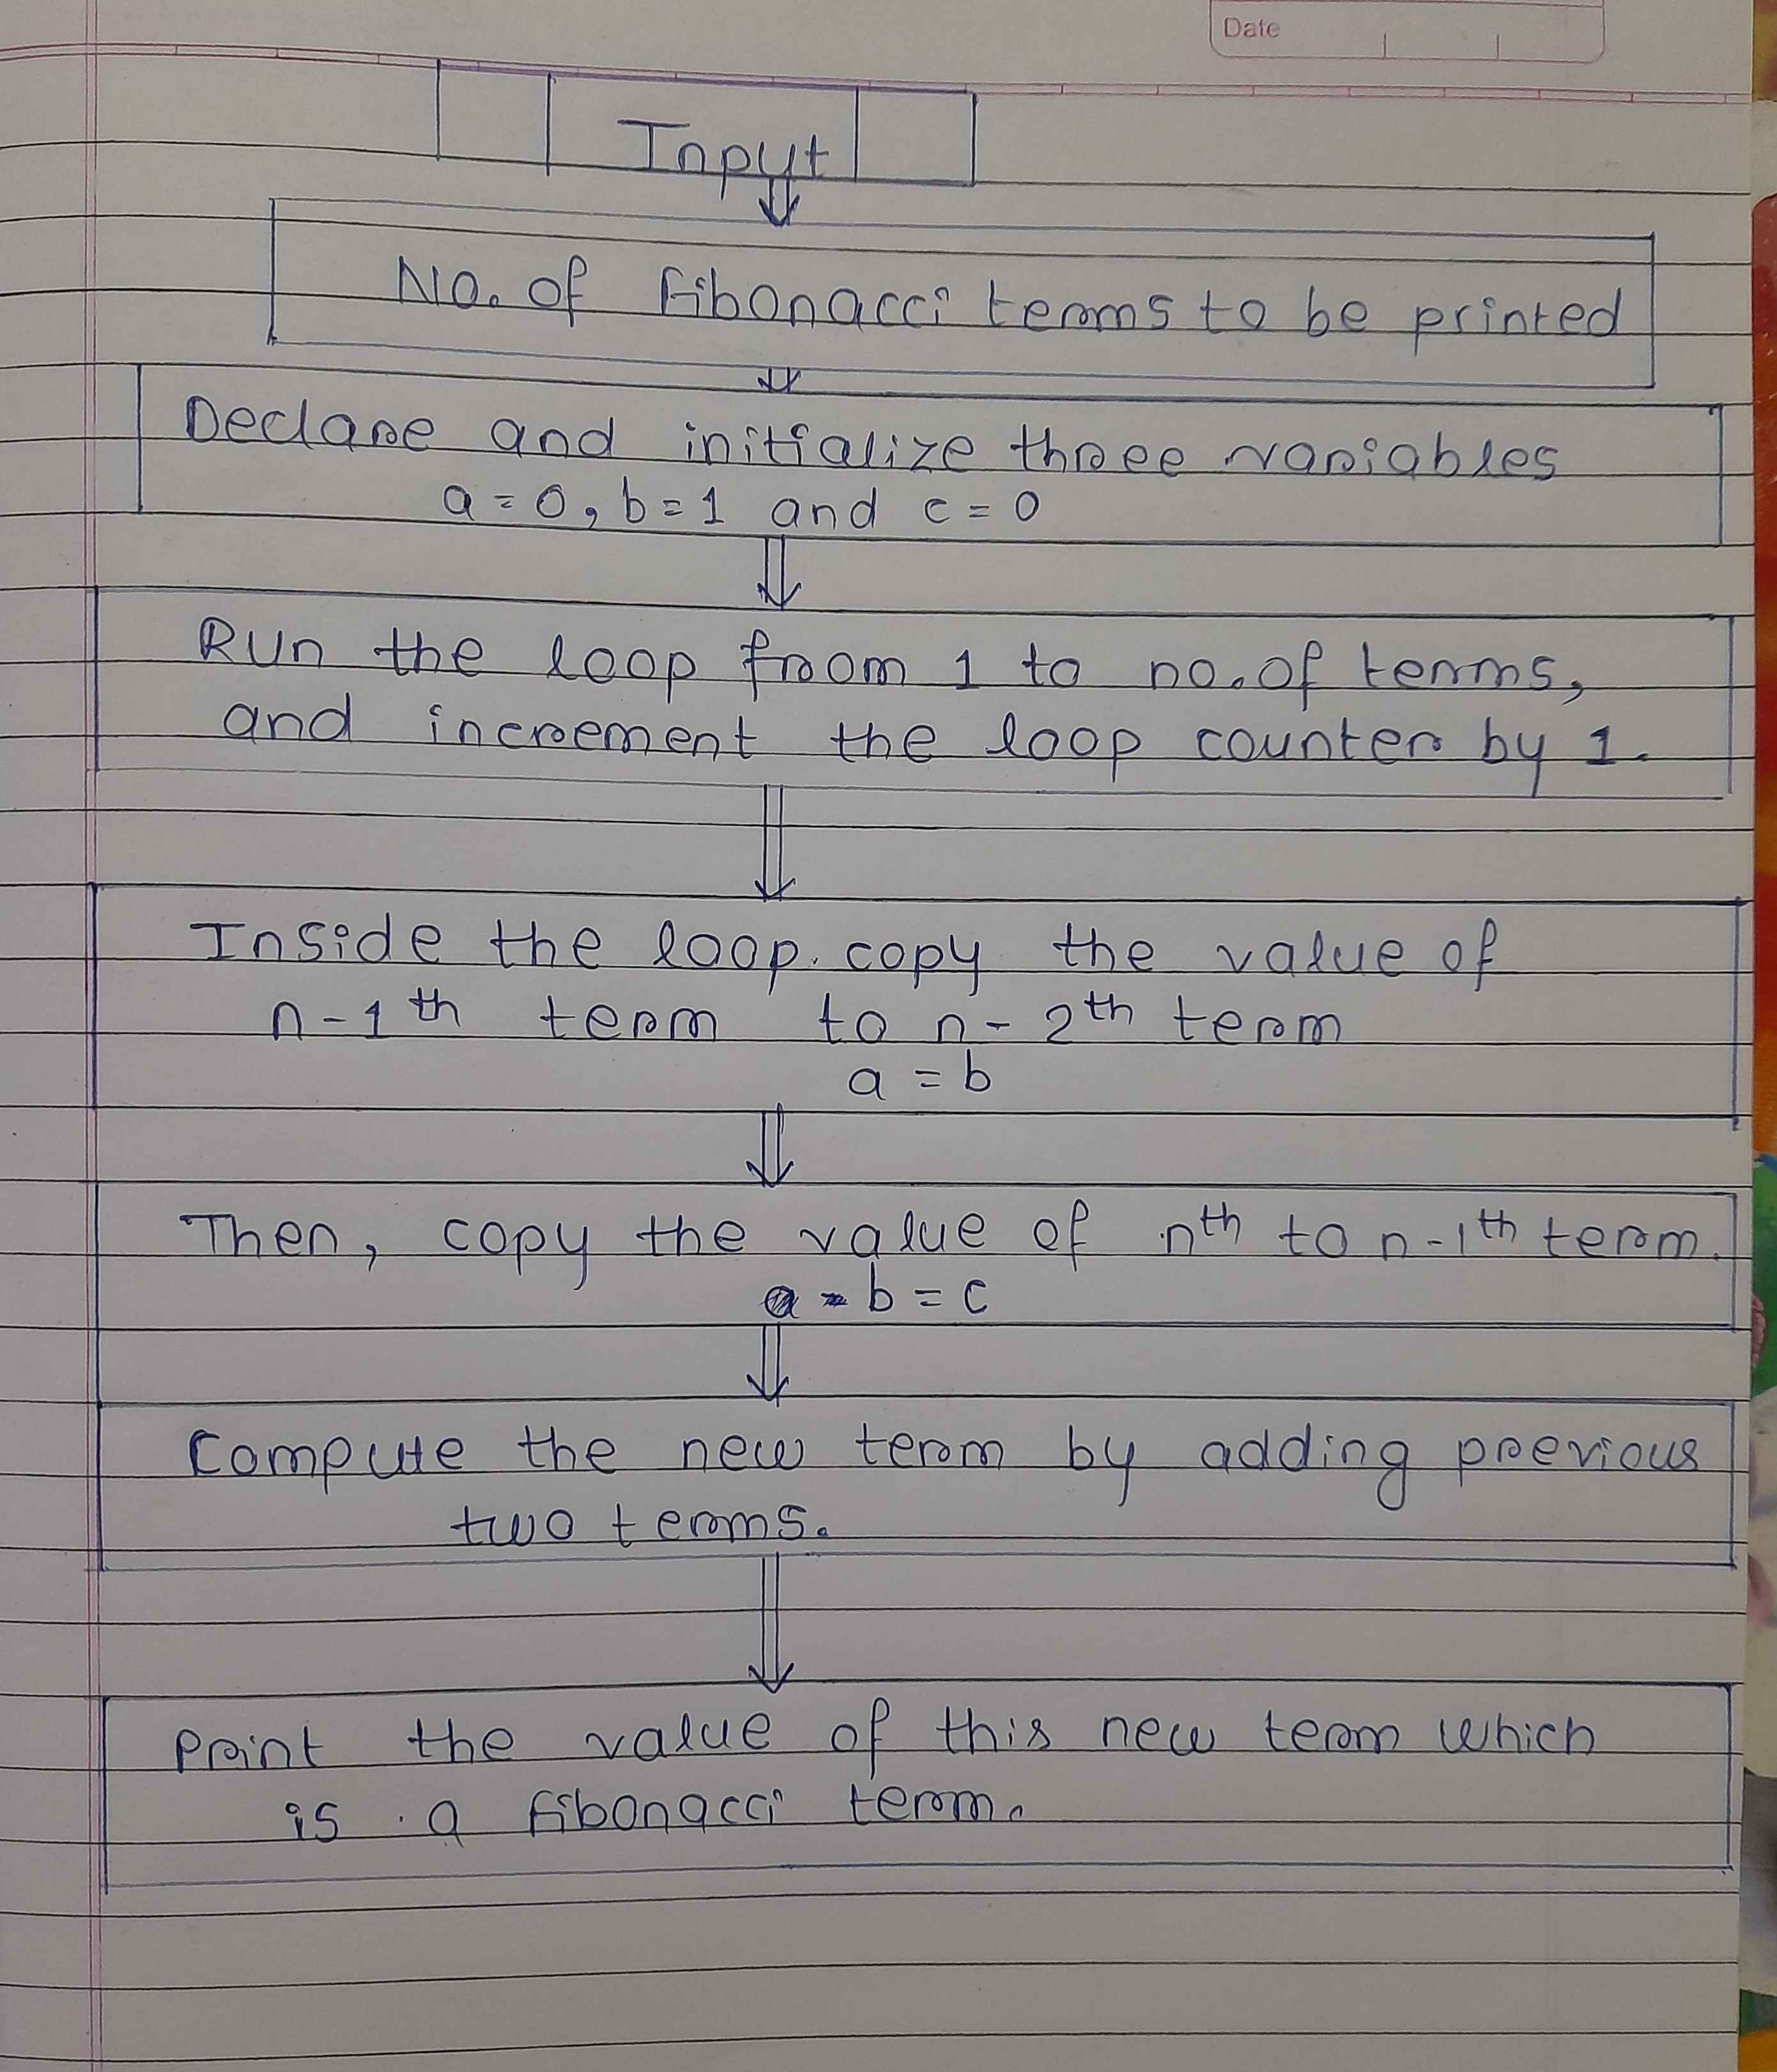 Date
Input
No. of fibonacci terms to be printed
Declare and initialize three variables
a = 0, b = 1 and c = 0
Run the loop from 1 to no. of terms,
and increment the loop counter by 1.
Inside the loop copy the value of
n-1th term to n-2th term
a = b
Then, copy the value of nth to n-1th term.
b = c
Compute the new term by adding previous
two terms.
Print the value of this new term which
is a fibonacci term.